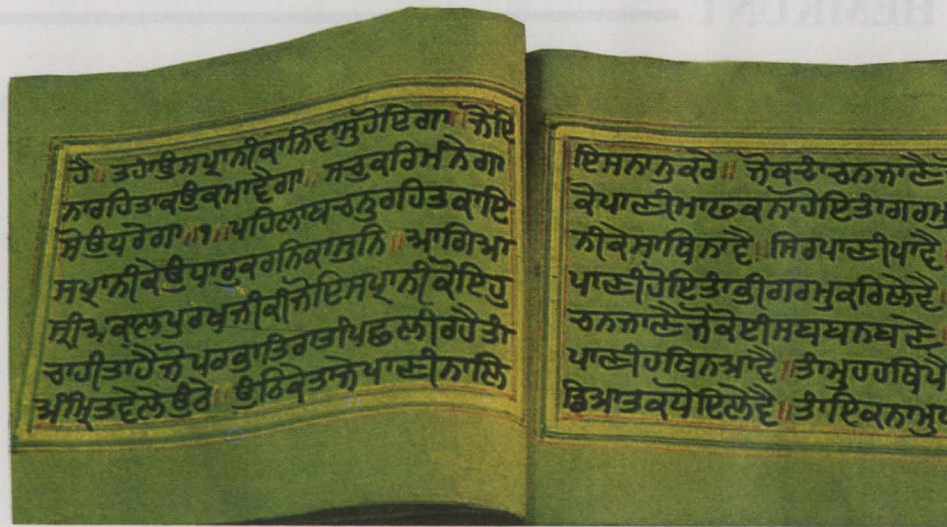 ਹੈ ਤਹਾਉਸਪ੍ਰਾਨੀਕਾਨਿਵਾਸੁਹੋਇਗਾ॥ਜੋਇ
ਨਾਰਹਿਤਾਕਉਕਮਾਵੈਗਾ ਸਚੁਕਰਿਮੰਨੇਗਾ
ਸੋਉਧਰੇਗਾ॥੧॥ਪਹਿਲਾਬਚਨੁਰਹਿਤਕਾਇ
ਸਪ੍ਰਾਨੀਕੇਉਧਾਰੁਕਰਨਿਕਾਸੁਨਿ॥ਆਗਿਆ
ਸ੍ਰੀਅਕਾਲਪੁਰਖੁਜੀਕੀਜੋਇਸਪ੍ਰਾਨੀਕੋਇਹੁ
ਚਾਹੀਤਾਹੈਜੋਪਰਭਾਤਿਰਾਤੀਪਿਛਲੀਰਹੈਤਾਂ
ਅੰਮ੍ਰਿਤਵੇਲੇਉਠੇ॥ਉਠਿਕੇਤਾਜੇਪਾਣੀਨਾਲਿ
ਇਸਨਾਨੁਕਰੈ॥ ਜੇਕਠਾਚਨਜਾਣੈ
ਕੇਪਾਣੀਮਾਫਕਨਾਹੋਇਤਾਗਰਮੁ
ਨੀਕੇਸਾਥਿਨਾਵੈ॥ਸਿਰਪਾਣੀਪਾਵੈ
ਪਾਣੀਹੋਇਤਾਂਭੀਗਰਮੁਕਰਿਲੇਵੈ
ਚਨਜਾਣੈਜੇਕੋਈਸਬਬਨਬਣੈ
ਪਾਣੀਹਥਿਨਆਵੈ॥ਤਾਂਮੁਹਹਥਿਪੈ
ਧੋਇਲੇਵੈ॥ਤਾਂਇਕਨਾਮੁ